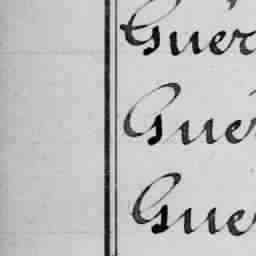 Guér
Gué
Gue